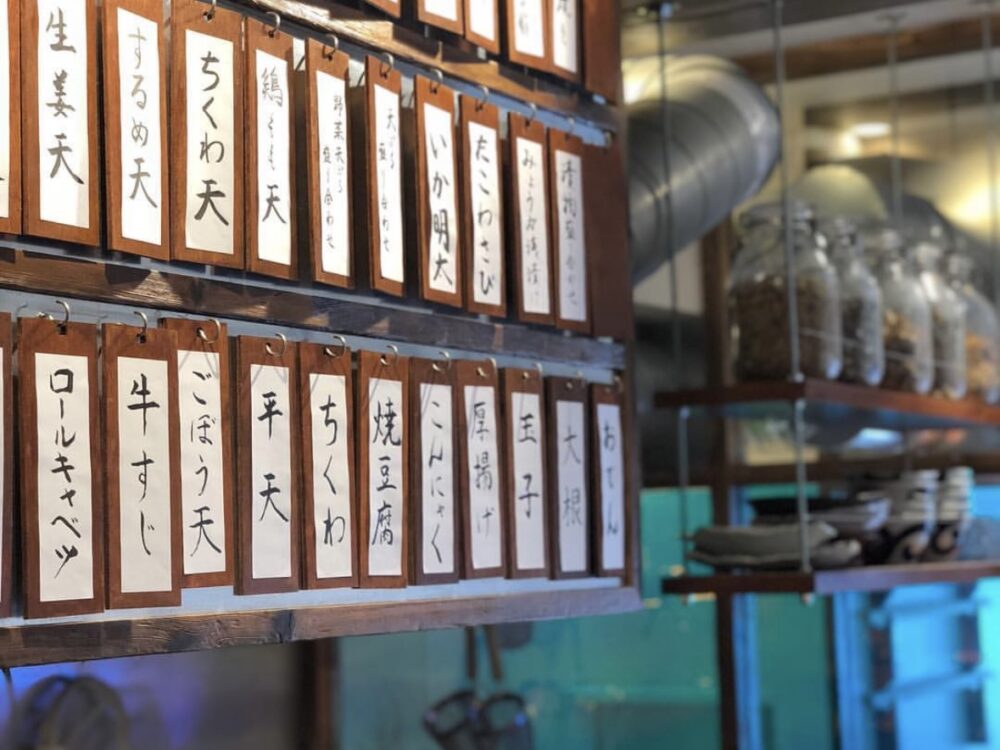 みょうが浅漬け
たこわさび
いか明太
天ぷら
盛り合わせ
野菜天ぷら
盛り合わせ
鶏もも天
ちくわ天
するめ天
生姜天
おでん
大根
玉子
厚揚げ
こんにゃく
焼豆腐
ちくわ
平天
ごぼう天
牛すじ
ロールキャベツ